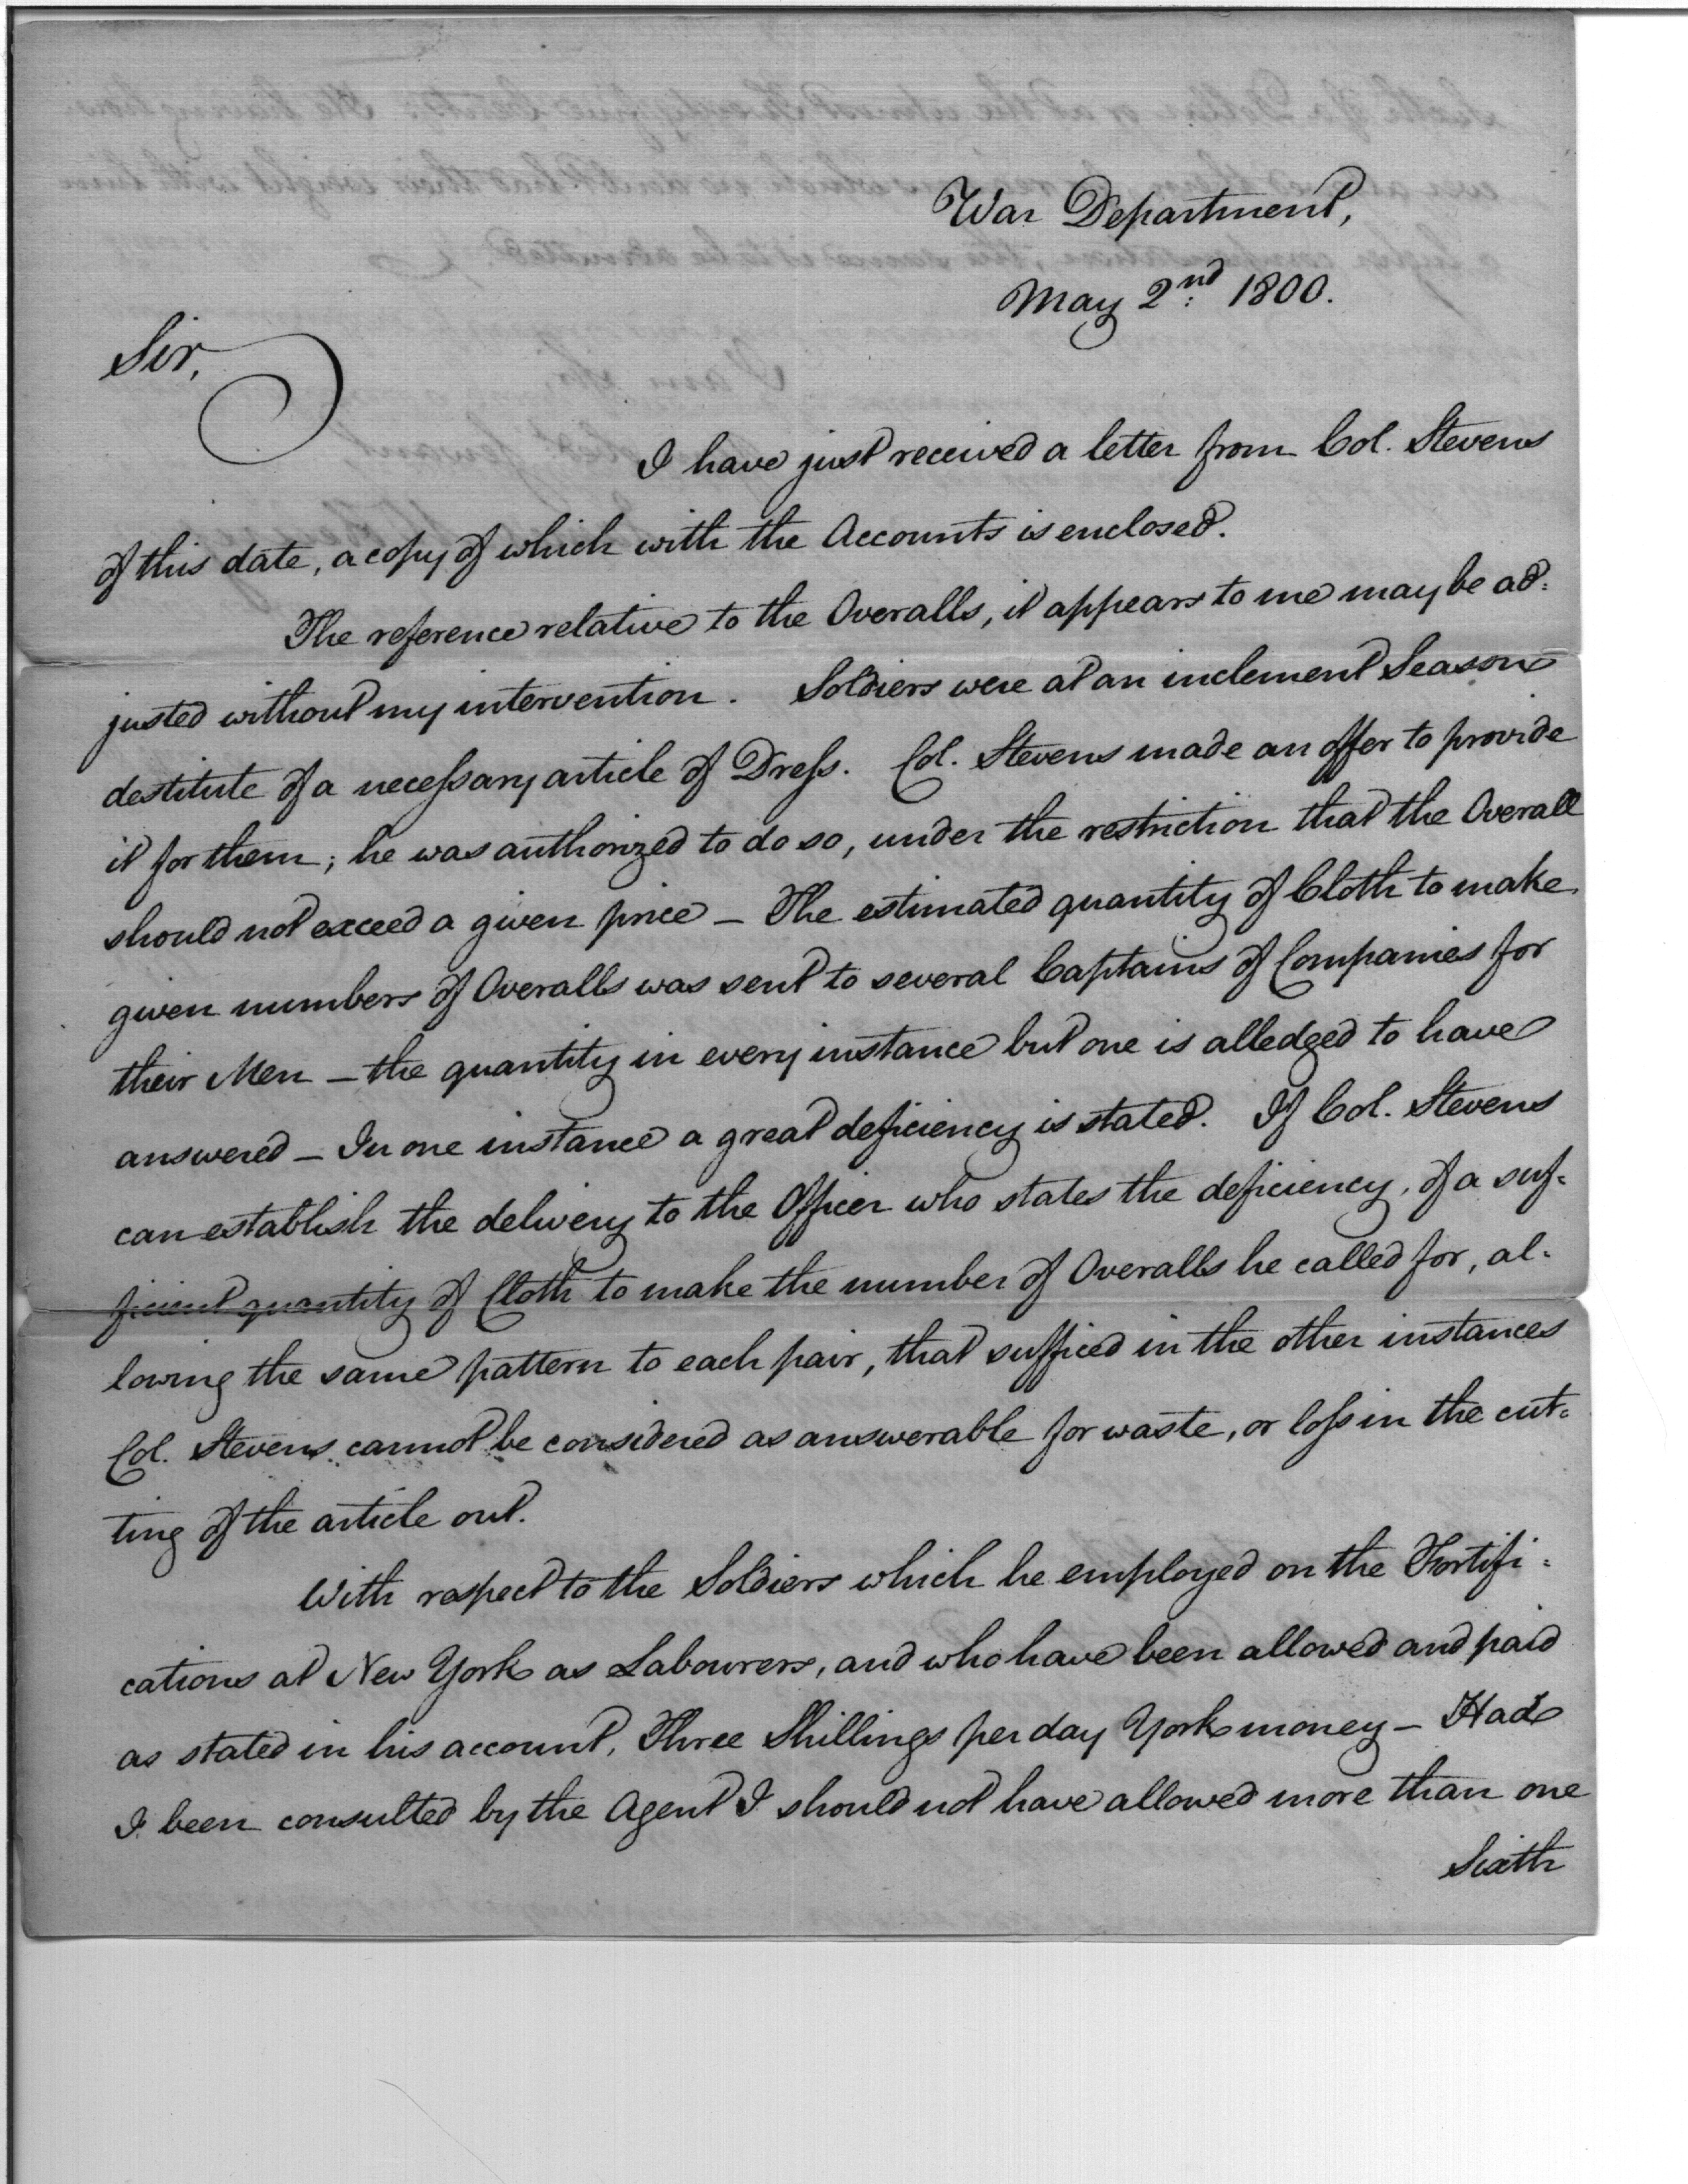 War Department,
May 2nd: 1800.
Sir,
I have just received a letter from Col. Stevens
of this date, a copy of which with the Accounts is enclosed.
The reference relative to the Overalls, it appears to me may be ad=
justed without my intervention. Soldiers were at an inclement Season
destitute of a necessary article of Dress. Col. Stevens made an offer to provide
it for them; he was authorized to do so, under the restriction that the Overall
should not exceed a given price – The estimated quantity of Cloth to make
given numbers of Overalls was sent to several Captains of Companies for
their Men – the quantity in every instance but one is alledged to have
answered – In one instance a great deficiency is stated. If Col. Stevens
can establish the delivery to the Officer who states the deficiency, of a suf=
ficient quantity of Cloth to make the number of Overalls he called for, al=
lowing the same pattern to each pair, that sufficed in the other instances
Col. Stevens cannot be considered as answerable for waste, or loss in the cut=
ting of the article out.
With respect to the Soldiers which he employed on the Fortifi=
cations at New York as Labourers, and who have been allowed and paid
as stated in his account, Three Shillings per day York money – Had
I been consulted by the Agent I should not have allowed more than one
Sixth